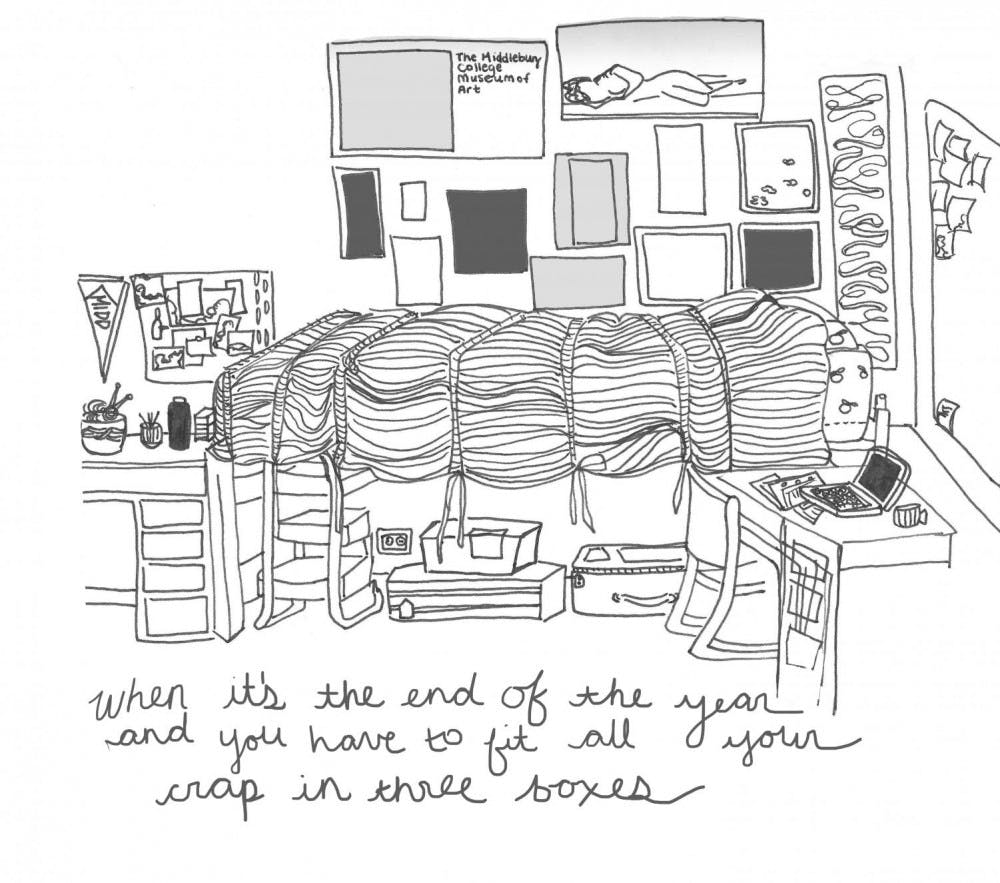 The Middlebury
College
Museum of
Art
MIDD
when it's the end of the year
and you have to fit all your
crap in three boxes